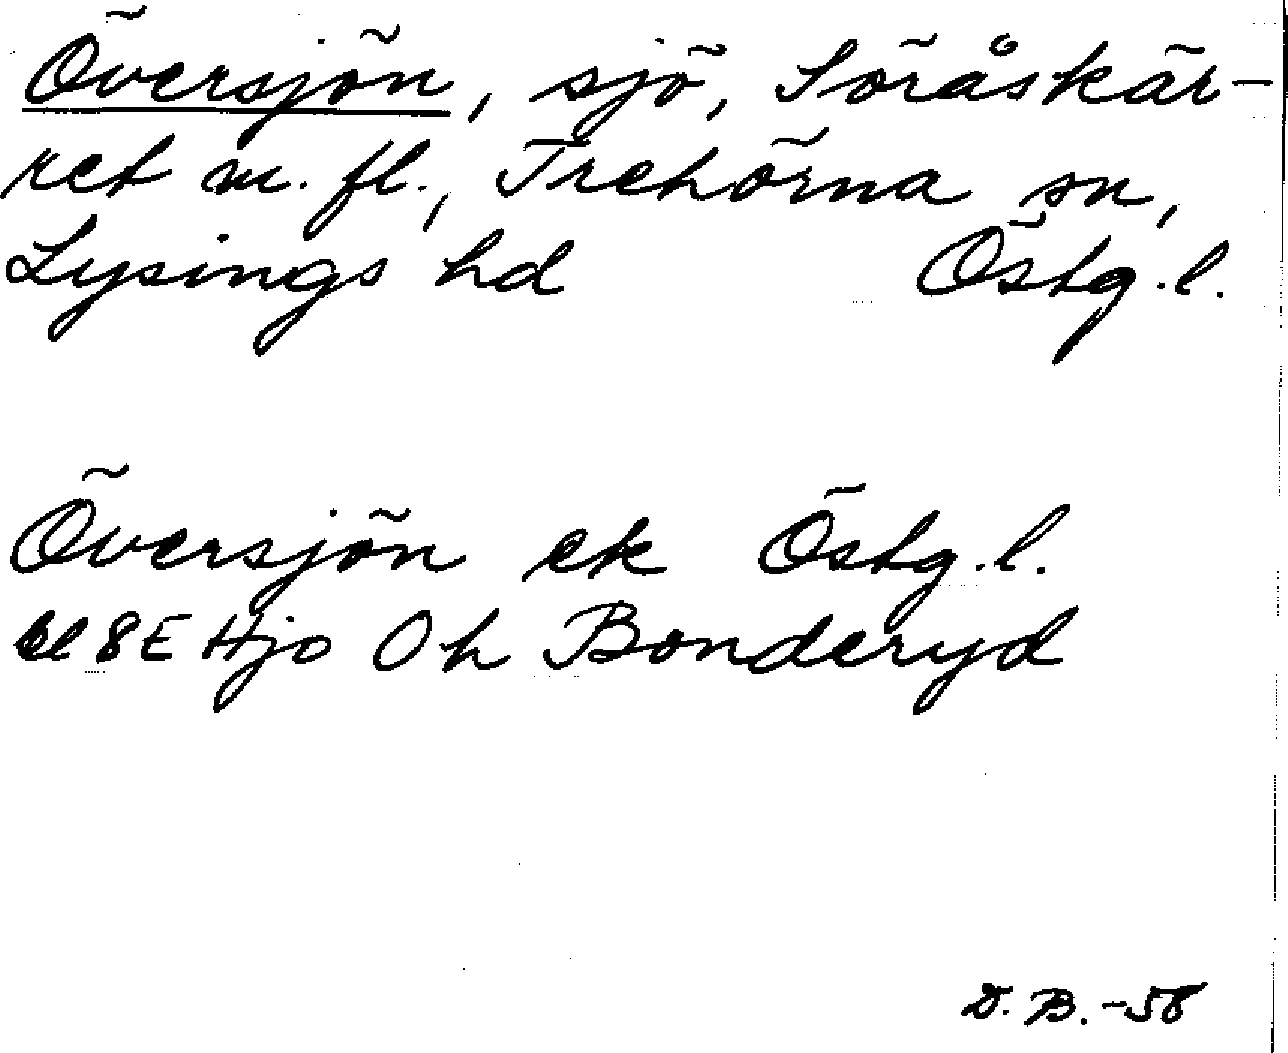 Översjön, sjö, Söråskär-
ret m. fl., Trehörna sn,
Lysings hd Östg.l.
Översjön ek Östg.l.
bl 8E Hjo Oh Bonderyd
D. B. -58